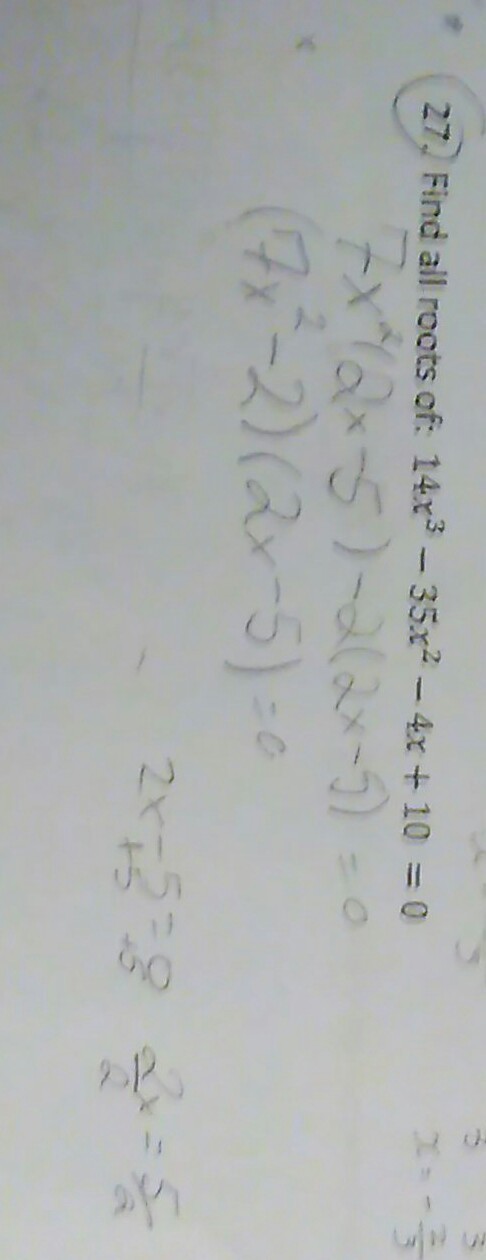 27. Find all roots of: 14x³ − 35x² − 4x + 10 = 0
7x²(2x-5)-2(2x-5) = 0
(7x²-2)(2x-5) = 0
2x-5=0 2x/2 = 5/2
+5 +5
x = -2/3